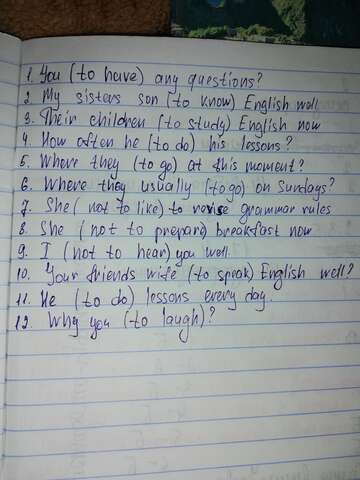 1. You (to have) any questions?
2. My sisters son (to know) English well
3. Their children (to study) English now
4. How often he (to do) his lessons?
5. Where they (to go) at this moment?
6. Where they usually (to go) on Sundays?
7. She (not to like) to revise grammar rules
8. She (not to prepare) breakfast now
9. I (not to hear) you well.
10. Your friends wife (to speak) English well?
11. He (to do) lessons every day.
12. Why you (to laugh)?